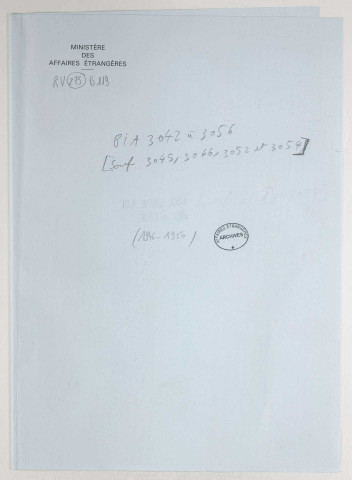 MINISTÈRE
DES
AFFAIRES ÉTRANGÈRES
RV 275 G 119
PIA 3042 à 3056
[Sauf 3045, 3046, 3052 et 3054]
(1946-1950)
AFFAIRES ETRANGERES
ARCHIVES